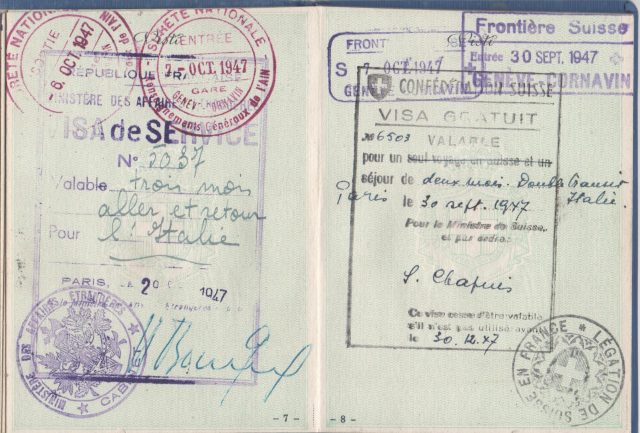 SÛRETÉ NATIONALE
SORTIE
6 OCT 1947
SÛRETÉ NATIONALE
ENTRÉE
7. OCT. 1947
GARE
GENÈVE-CORNAVIN
Renseignements Généraux de l'AIN
RÉPUBLIQUE FRA
MINISTÈRE DES AFFAIRES
VISA de SERVICE
N° 5037
Valable trois mois
aller et retour
Pour l'Italie
PARIS, LE 20 1947
MINISTÈRE DES AFFAIRES ÉTRANGÈRES
CABINET
- 7 -
FRONT
S 7 OCT. 1947
GEN
Frontière Suisse
Entrée 30 SEPT. 1947
GENÈVE CORNAVIN
CONFÉDÉRATION SUISSE
VISA GRATUIT
No 6503
VALABLE
pour un seul voyage en suisse et un
séjour de deux mois. Double transit
Paris le 30 sept. 1947 Italie.
Pour le Ministre de Suisse,
et par ordre:
S. Chapuis
Ce visa cesse d'être valable
s'il n'est pas utilisé avant
le 30.12.47
LÉGATION DE SUISSE EN FRANCE
- 8 -